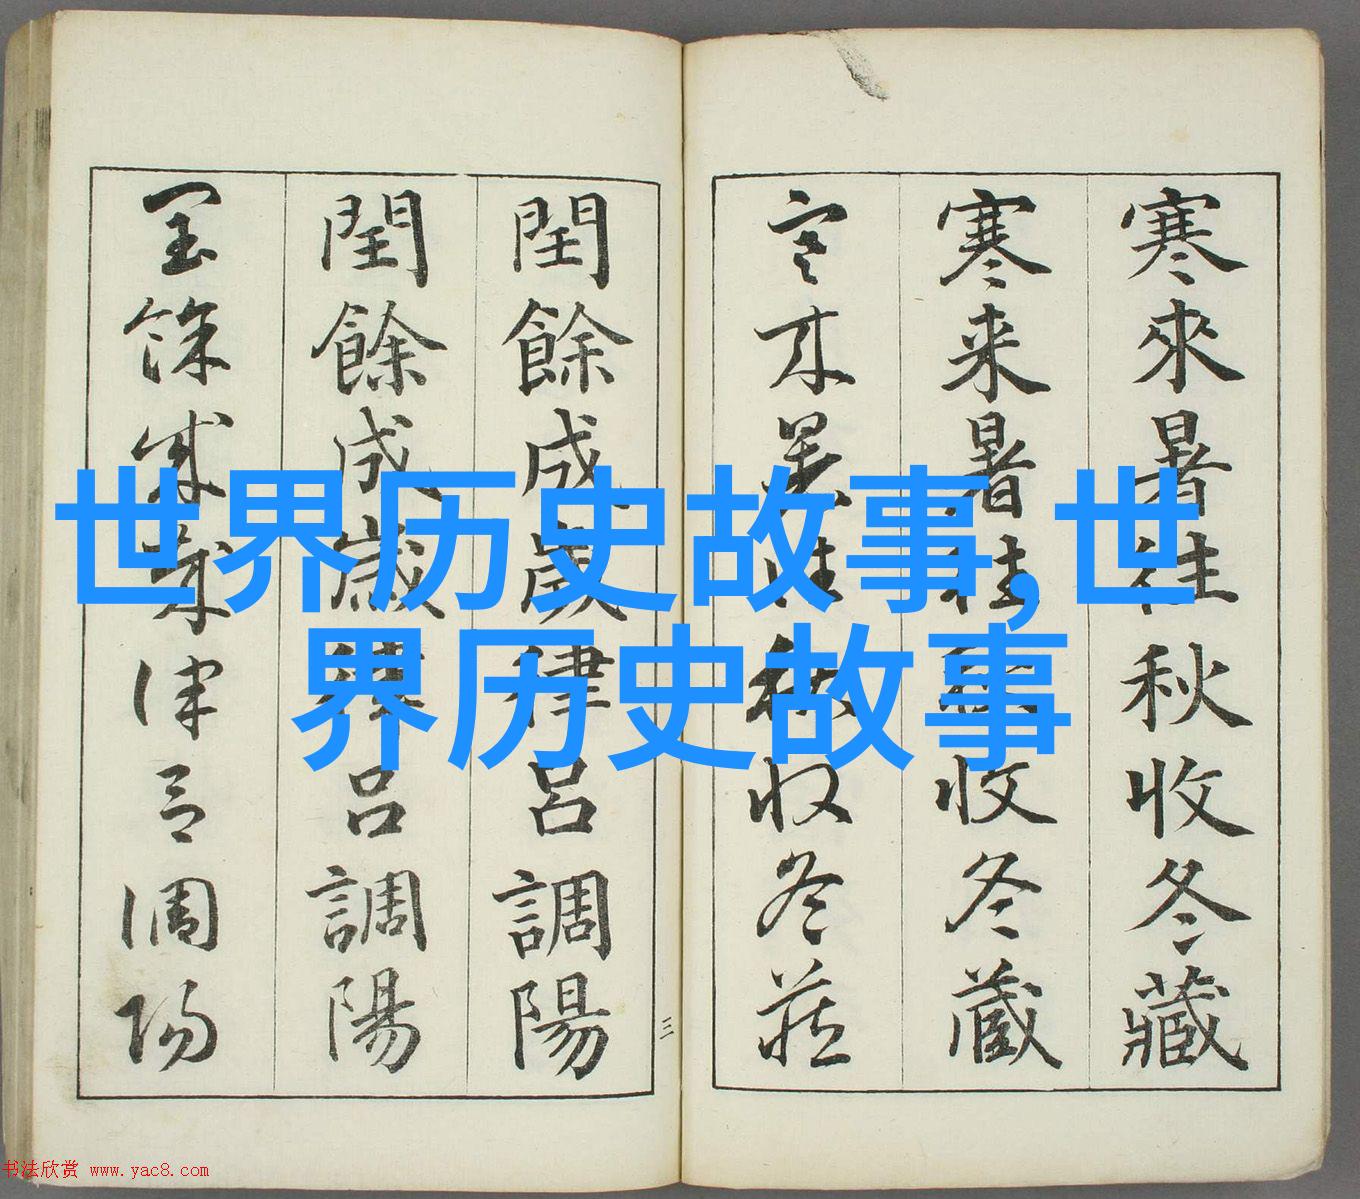 世界历史故事,世
界历史故事
寒來暑往秋收冬藏
寒来暑往秋收冬蔵
寒来暑往秋收冬藏
閏餘成歲律呂調陽
閏餘成歲律呂調陽
閏餘成歲律呂調陽
三
书法欣赏 www.yac8.com